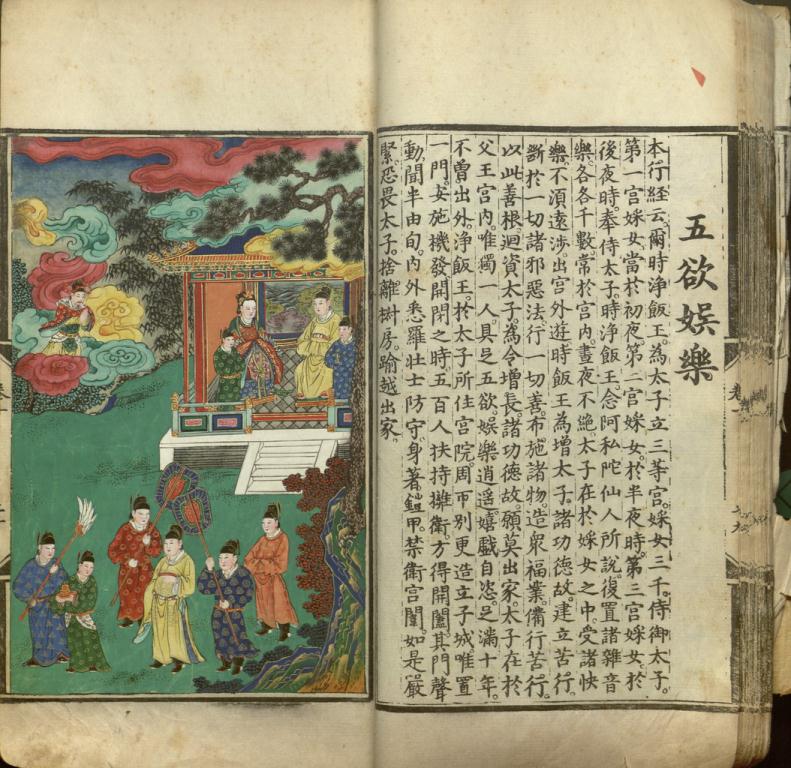 五欲娛樂
本行經云。爾時淨飯王。為太子立三等宮。婇女三千。侍御太子。
第一宮婇女。當於初夜。第二宮婇女。於半夜時。第三宮婇女。於
後夜時。奉侍太子。時淨飯王。念阿私陀仙人所說。復置諸雜音
樂。各各千數。常於宮內。晝夜不絕。太子在於婇女之中。受諸快
樂。不須遠涉。出宮外遊。時飯王為增太子。諸功德故。建立苦行。
斷於一切諸邪惡法。行一切善。布施諸物。造眾福業。備行苦行。
以此善根。迴資太子。為令增長。諸功德故。願莫出家。太子在於
父王宮內。唯獨一人。具足五欲。娛樂逍遥。嬉戲自恣。足滿十年。
不曾出外。淨飯王。於太子所住宮院。周帀別更造立子城。唯置
一門。安施機發。開閉之時。五百人扶持擁衛。方得開闔。其門聲
動。聞半由旬。內外悉羅壯士防守。身著鎧甲。禁衛宮闈。如是嚴
緊。恐畏太子。捨離樹房。踰越出家。